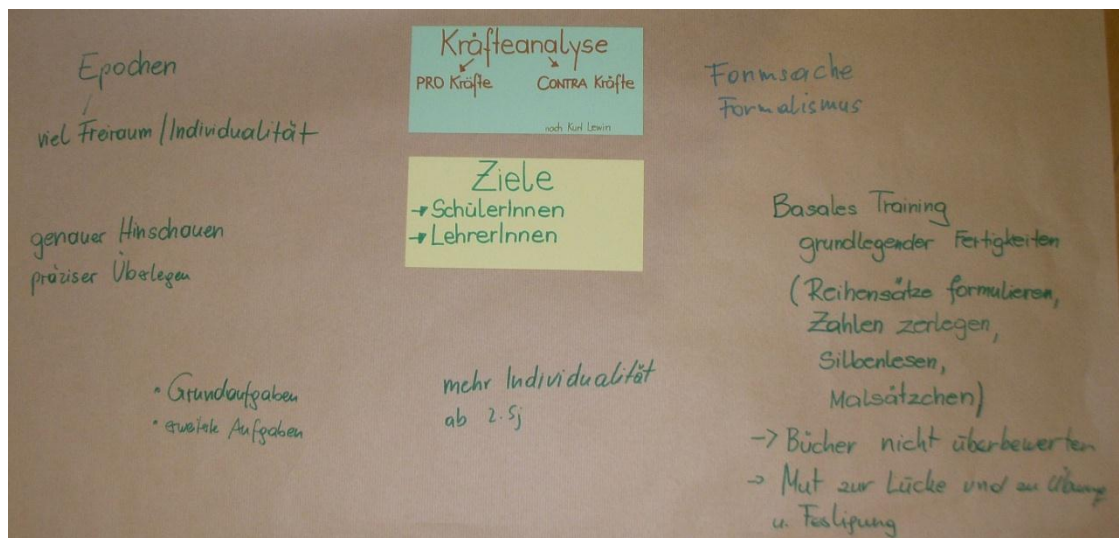 Epochen
viel Freiraum / Individualität
genauer Hinschauen
präziser Überlegen
• Grundaufgaben
• erweiterte Aufgaben
Kräfteanalyse
PRO Kräfte CONTRA Kräfte
nach Kurt Lewin
Ziele
→ SchülerInnen
→ LehrerInnen
mehr Individualität
ab 2. Sj
Formsache
Formalismus
Basales Training
grundlegender Fertigkeiten
(Reihensätze formulieren,
Zahlen zerlegen,
Silbenlesen,
Malsätzchen)
-> Bücher nicht überbewerten
-> Mut zur Lücke und zu Übung
u. Festigung